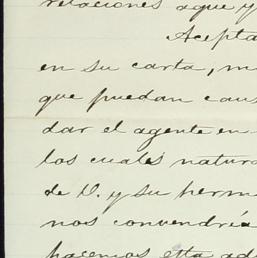 relaciones aque y
Acepta
en su carta, m
que puedan caus
dar el agente en
los cuales natura
de V. y su herm
nos convendría
hacemos esta ad